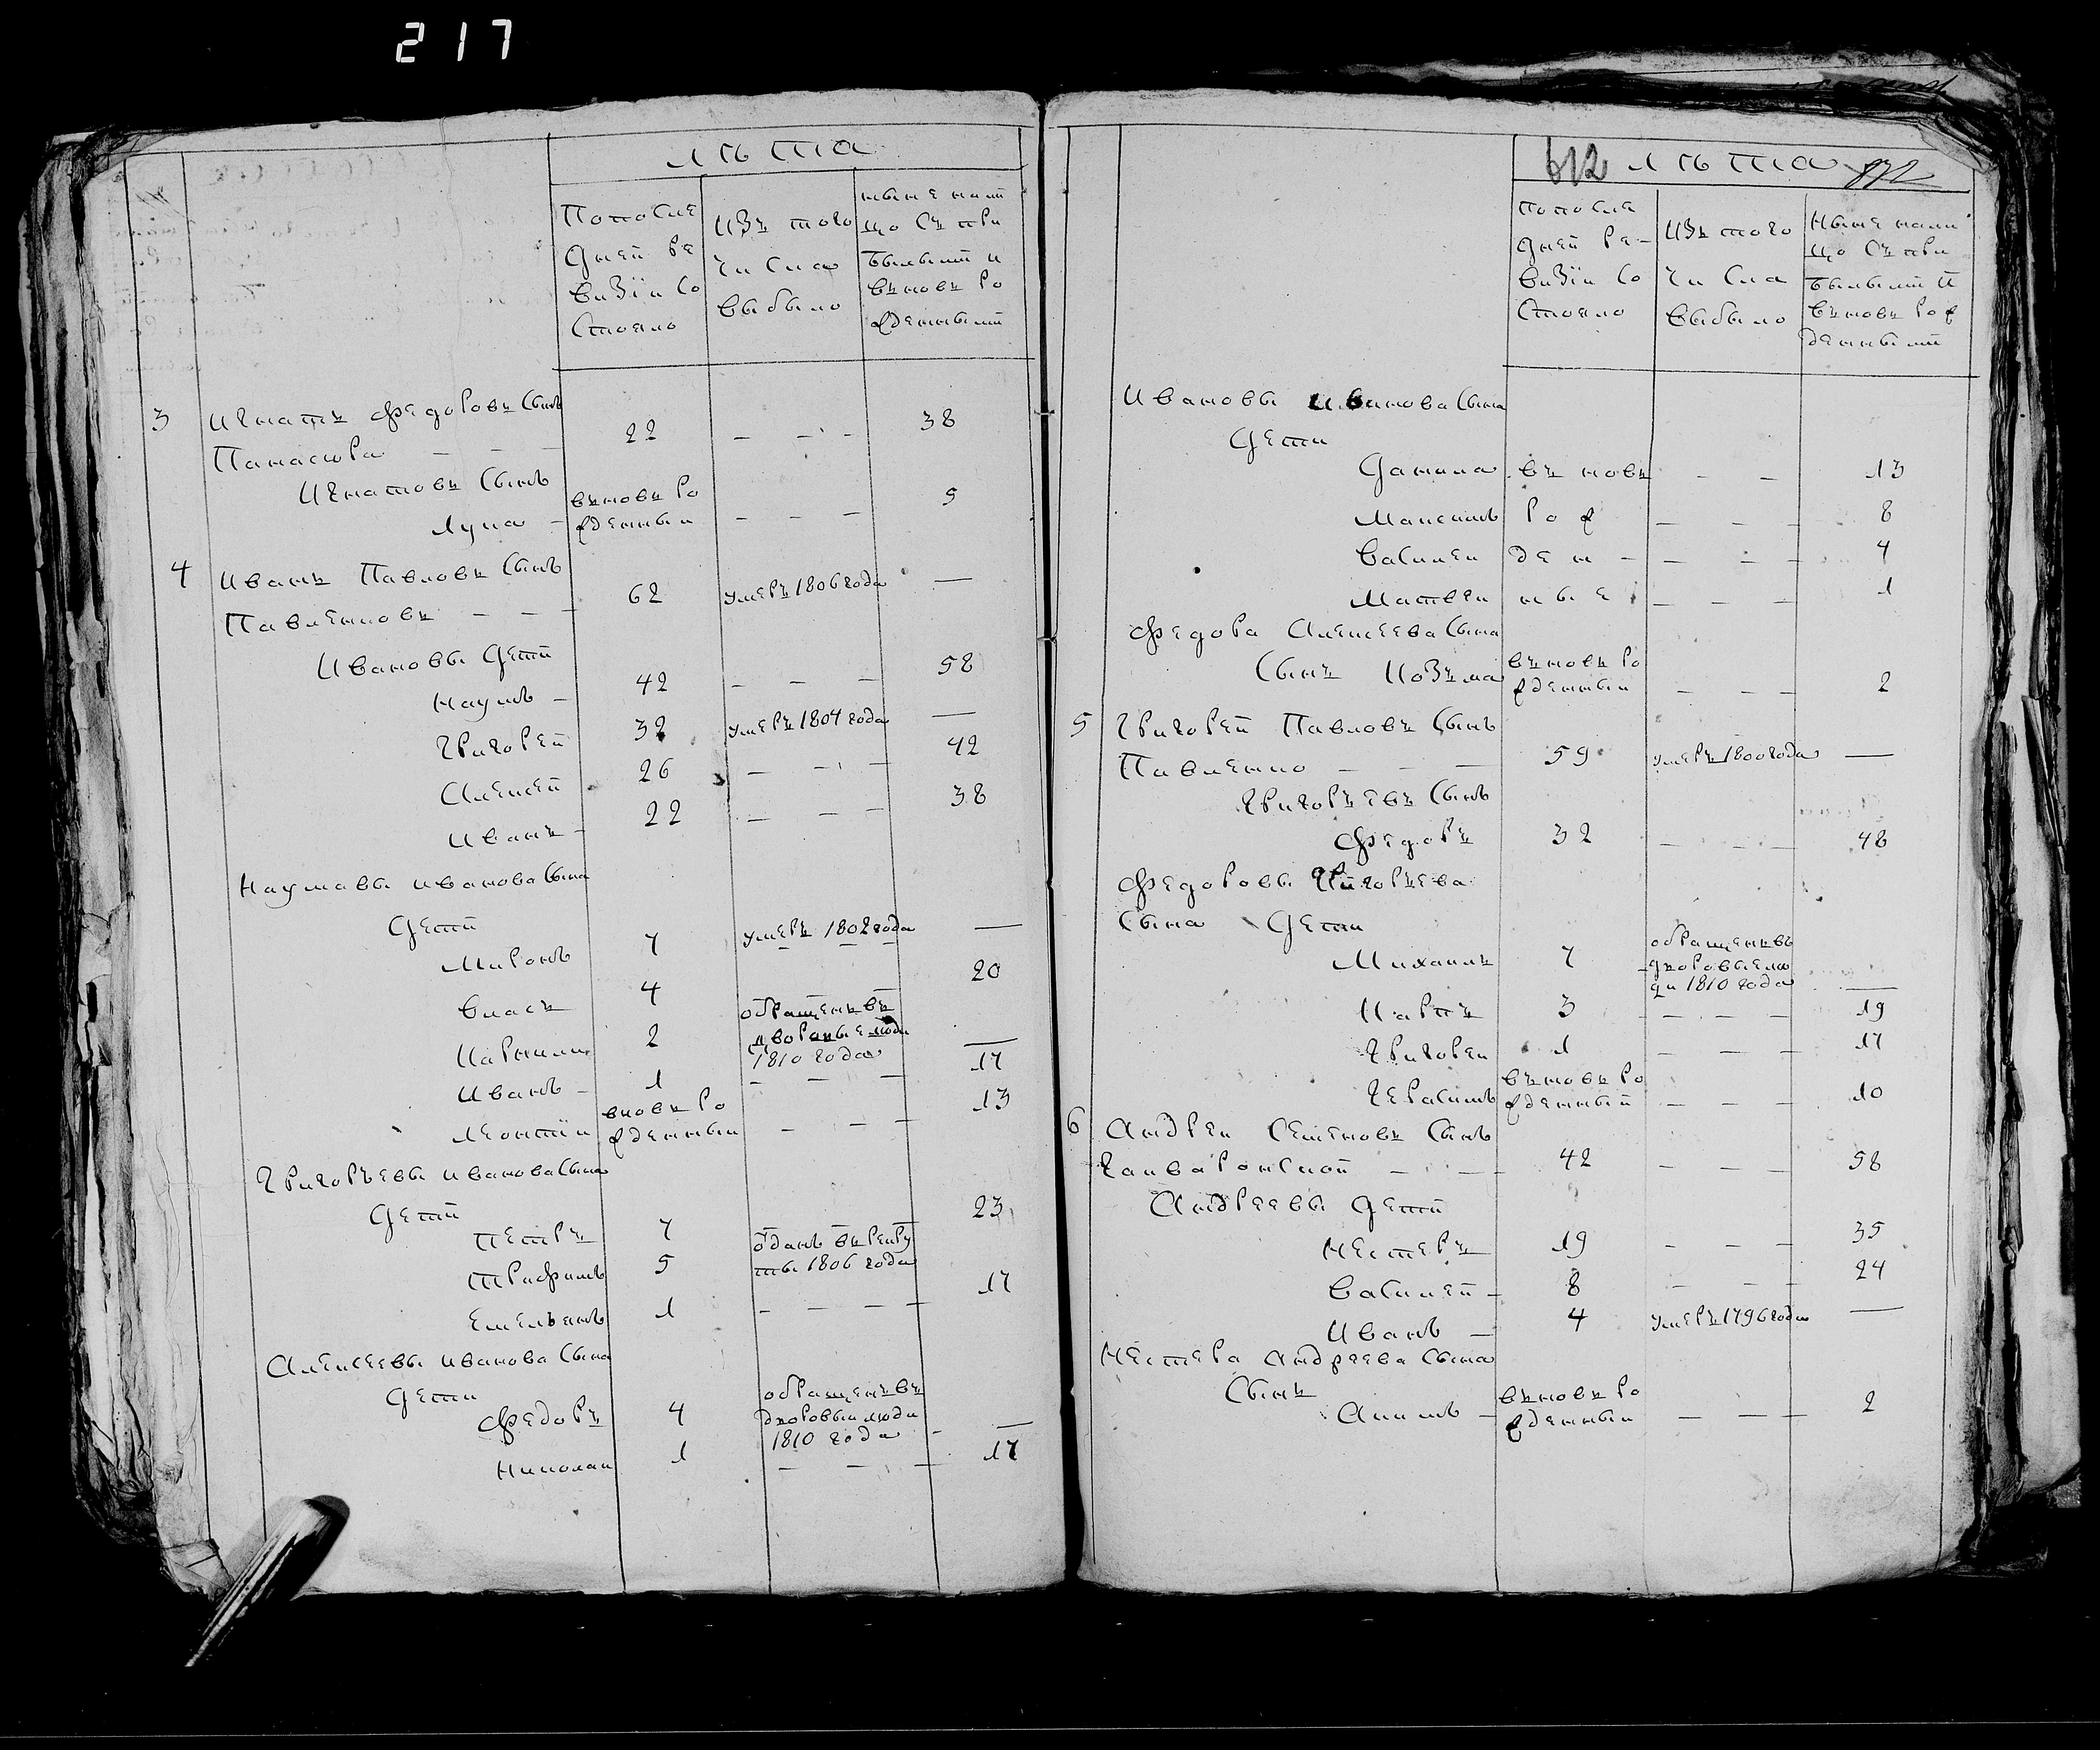 217
лѣта
По после
дней ре
визіи со
стояло
изъ того
числа
выбыло
ныне нали
цо съ при
былыми и
вновь ро
жденными
3 Игнатъ Федоровъ сынъ
Панасюра — — 22 — — — 38
Игнатовъ сынъ
Лука — въновь ро
жденный — — — 5
4 Иванъ Павловъ сынъ
Павленковъ — — — 62 умеръ 1806 года —
Ивановы дети
Наумъ — 42 — — — 58
Григорей 32 умеръ 1804 года —
Алексей 26 — — — 42
Иванъ — 22 — — — 38
Наумавы иванова сына
Дети
Миронъ 7 умеръ 1802 года —
Власъ 4 — — 20
Карнили 2 обращенъ въ
дворовые люди
1810 года —
Иванъ — 1 — — — 17
Леонтіи вновь ро
жденный — — — 13
Григорьевы иванова сына
Дети
Петръ 7 23
Трифимъ 5 отданъ въ рекру
ты 1806 года
Емельянъ 1 — — — — 17
Алексеевы иванова сына
Дети
Федоръ 4 обращенъ въ
дворовыи люди
1810 года — —
Николаи 1 — — — 17
612 лѣта
По после
дней ре-
визіи со
стояло
изъ того
числа
выбыло
Ныне нали
цо съ при
былыми и
вновь рож
денными
Ивановы иванова сына
Дети
Данила въ новь — — 13
Максимъ рож — — — 8
Василеи ден- — — — 4
Матвеи ные — — — 1
Федора Алексеева сына
сынъ Козма въновь ро
жденныи — — — 2
5 Григорей Павловъ сынъ
Павленко — — — 59 умеръ 1800 года —
Григорьевъ сынъ
Федоръ 32 — — — 48
Федоровы Григорьева
сына Дети
Михаилъ 7 обращенъ въ
дворовые лю
ди 1810 года —
Карпъ 3 — — — 19
Григореи 1 — — — 17
Герасимъ въновь ро
жденный — — — 10
6 Андреи Семеновъ сынъ
Гайваронской — — 42 — — — 58
Андреевы Дети
Нестеръ 19 — — — 35
Василей — 8 — — — 24
Иванъ — 4 умеръ 1796 года —
Нестера андреева сына
Сынъ
Акимъ — въновь ро
жденныи — — — 2